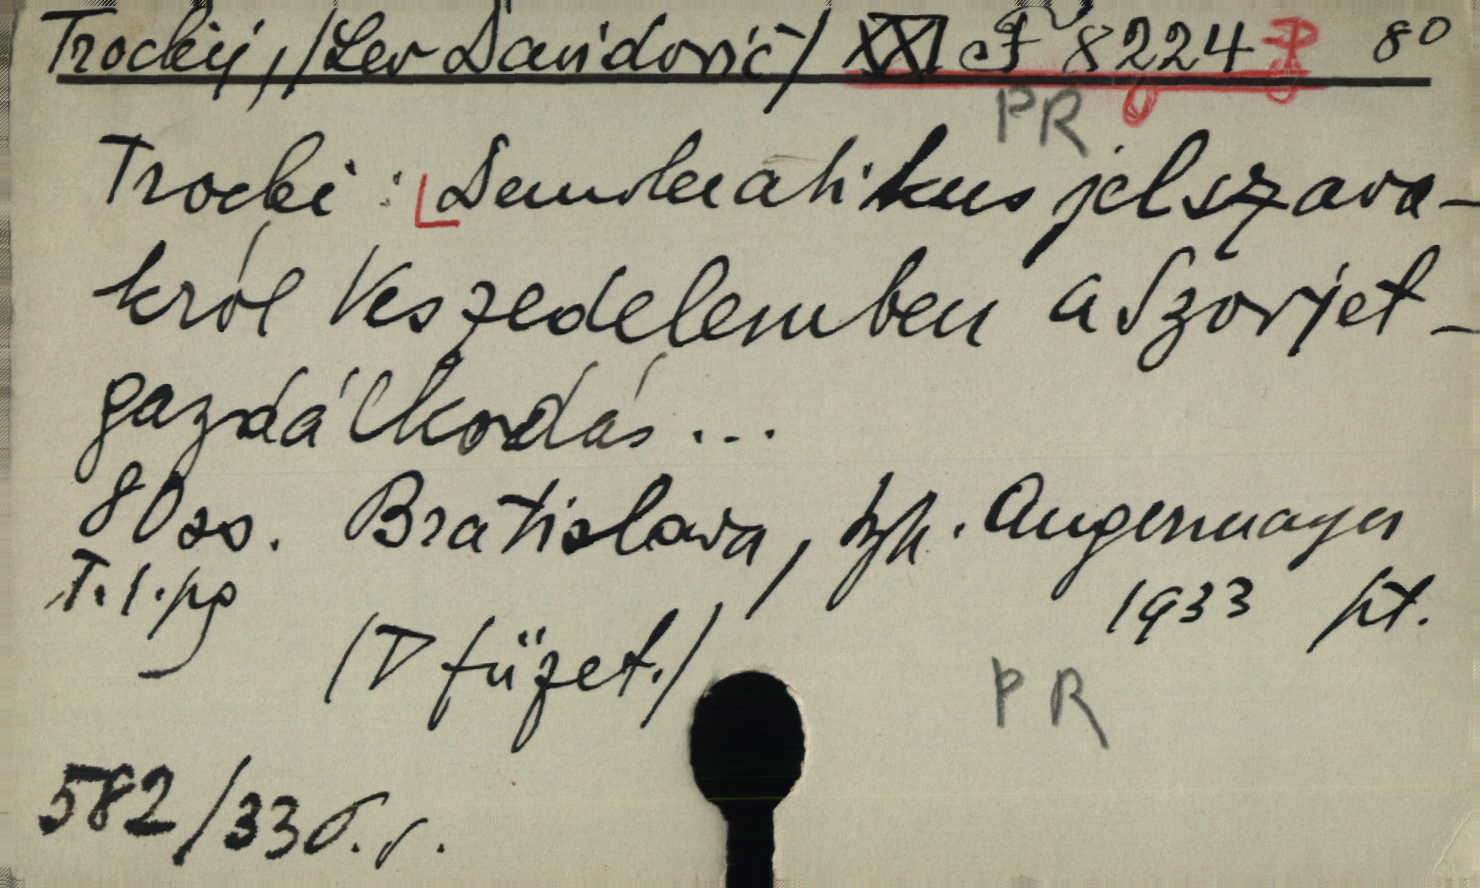 Trockij, /Lev Davidovič/ XXI F 8224 8°
PR
Trocki: Demokratikus jelszava-
król Veszedelemben a Szovjet-
gazdálkodás...
80 ss. Bratislava, tγπ. Angermayer
T.1.pg 1933 št.
/T füzet./
PR
582/33